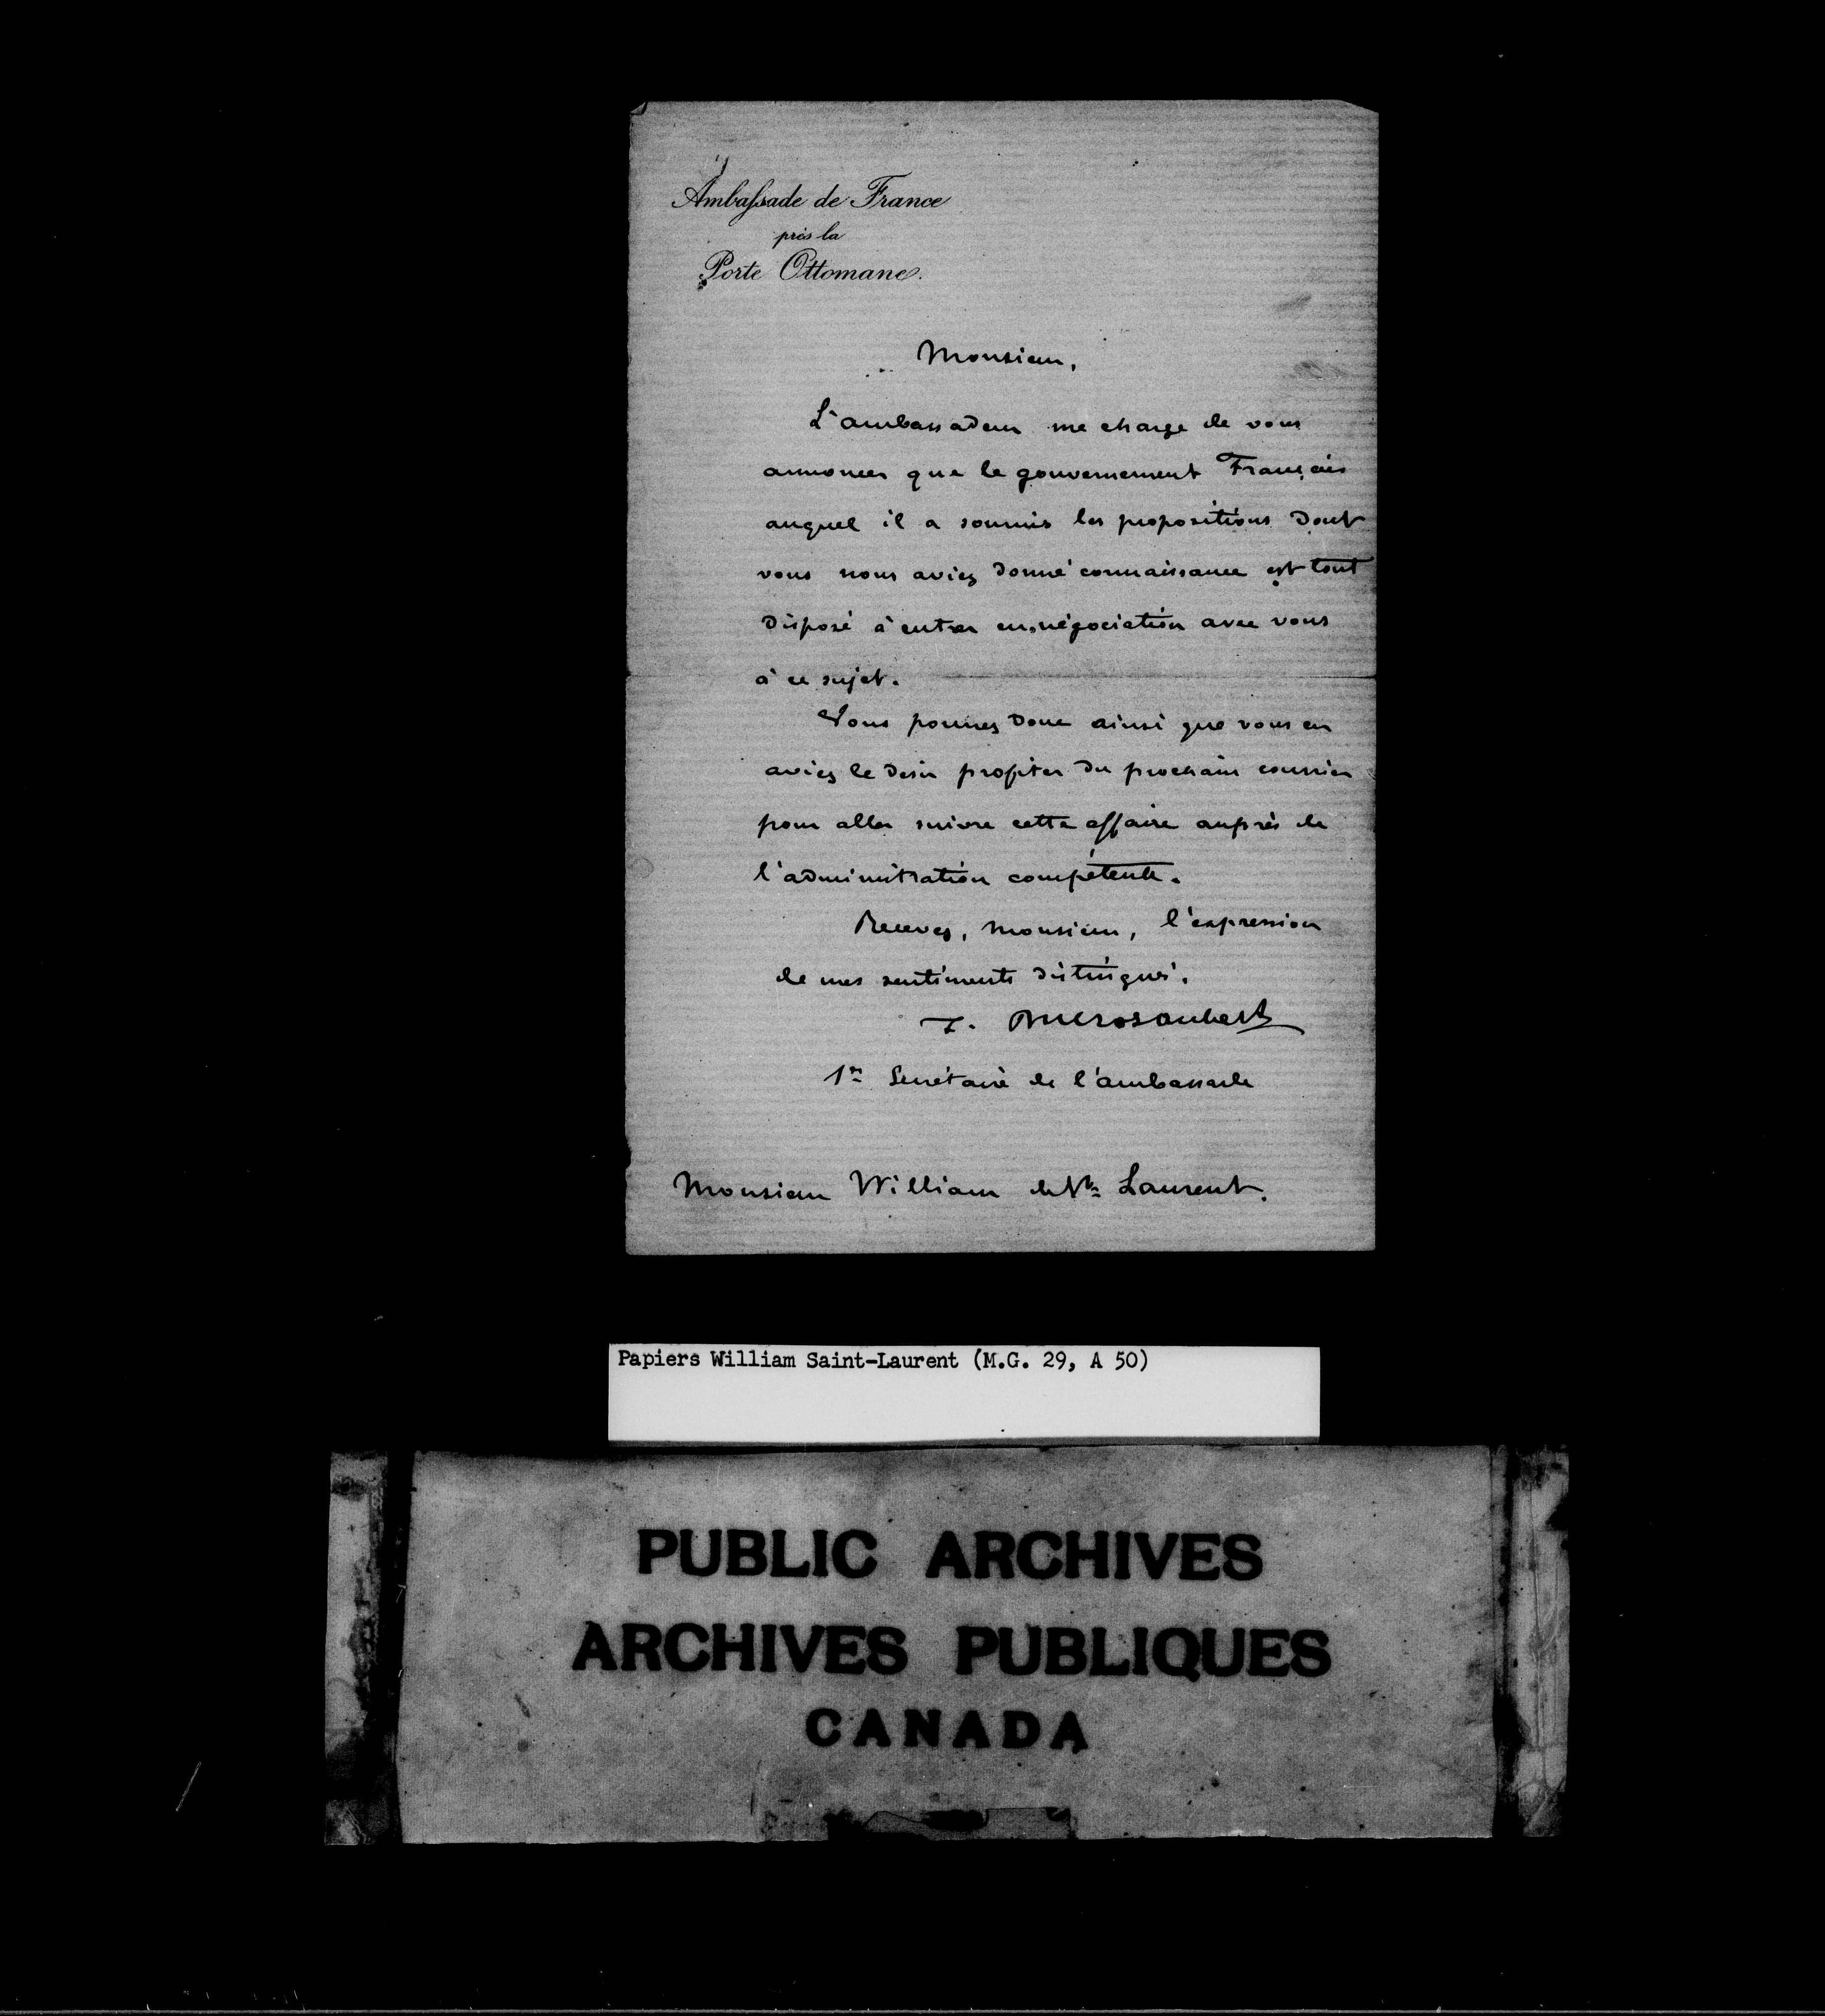 Ambassade de France
près la
Porte Ottomane.
Monsieur,
L'ambassadeur me charge de vous
annoncer que le gouvernement Français
auquel il a soumis les propositions dont
vous nous aviez donné connaissance est tout
disposé à entrer en négociation avec vous
à ce sujet.
Vous pourrez donc ainsi que vous en
aviez le désir profiter du prochain courrier
pour aller suivre cette affaire auprès de
l'administration compétente.
Recevez, Monsieur, l'expression
de mes sentiments distingués.
1er Secrétaire de l'ambassade
Monsieur William de St Laurent.
Papiers William Saint-Laurent (M.G. 29, A 50)
PUBLIC ARCHIVES
ARCHIVES PUBLIQUES
CANADA